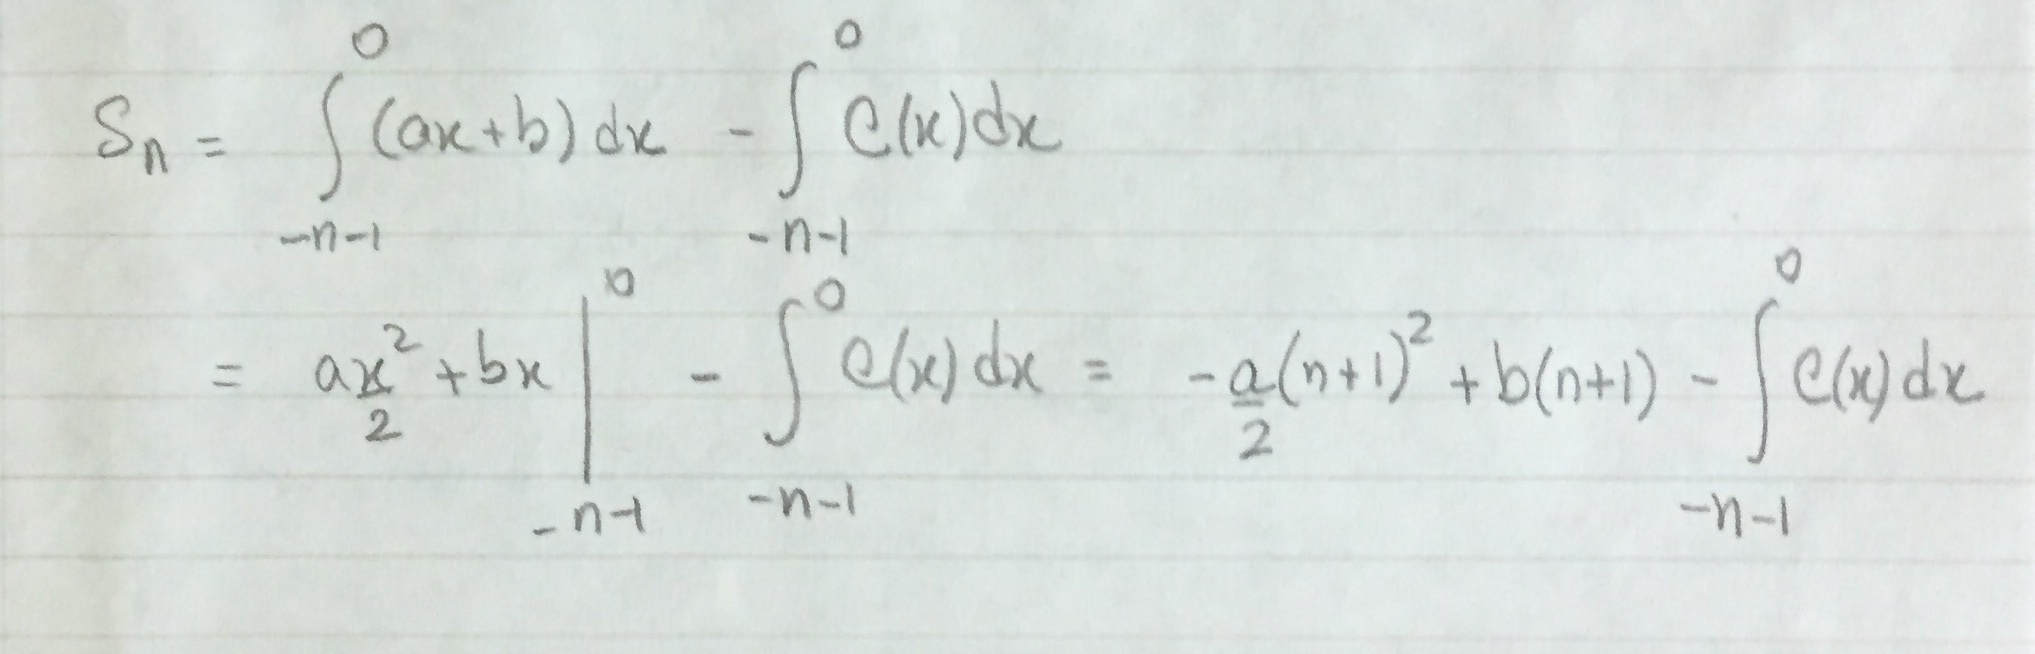 $S_n = \int_{-n-1}^{0} (ax+b)\,dx - \int_{-n-1}^{0} e(x)\,dx$
$= \left. \frac{ax^2}{2} + bx \right|_{-n-1}^{0} - \int_{-n-1}^{0} e(x)\,dx = -\frac{a}{2}(n+1)^2 + b(n+1) - \int_{-n-1}^{0} e(x)\,dx$